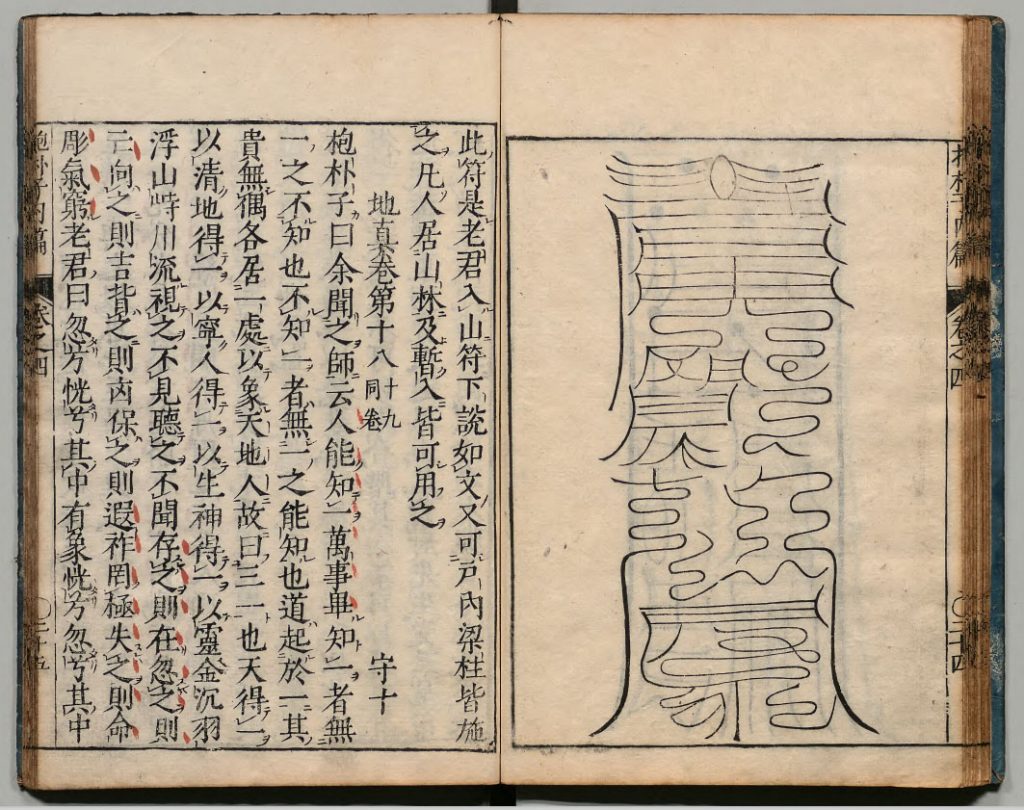 抱朴子内篇 卷之四 〇二十四
此符是老君入山符下說如文又可戸內梁柱皆施
之凡人居山林及暫入皆可用之
地真卷第十八 十九同卷 守十
枹朴子曰余聞之師云人能知一萬事畢知一者無
一之不知也不知一者無一之能知也道起於一其
貴無偶各居一處以象天地人故曰三一也天得一
以清地得一以寧人得一以生神得一以靈金沉羽
浮山峙川流視之不見聽之不聞存之則在忽之則
亡向之則吉背之則凶保之則遐祚罔極失之則命
彫氣窮老君曰忽兮恍兮其中有象恍兮忽兮其中
抱朴子内篇 卷之四 〇二十五